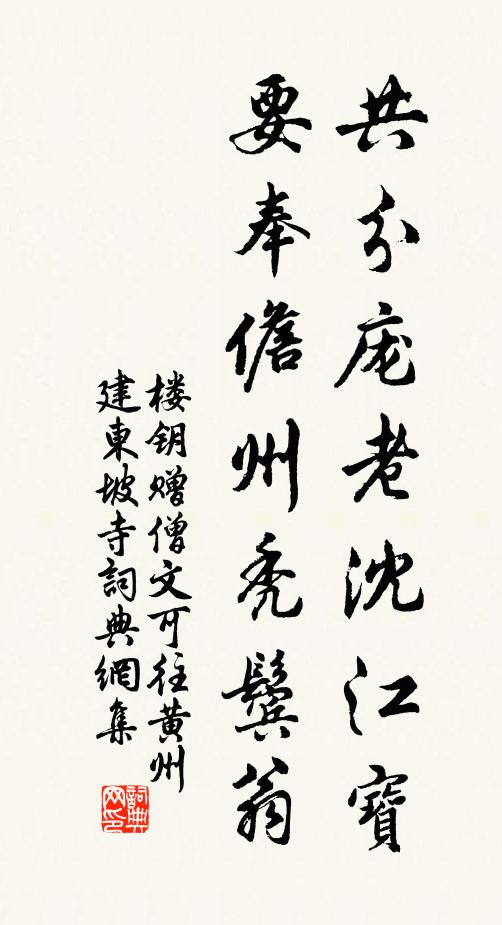 共分庞老沈江寶
要奉儋州秃鬓翁
楼钥赠僧文可往黄州
建東坡寺詞典網集
詞典
网印